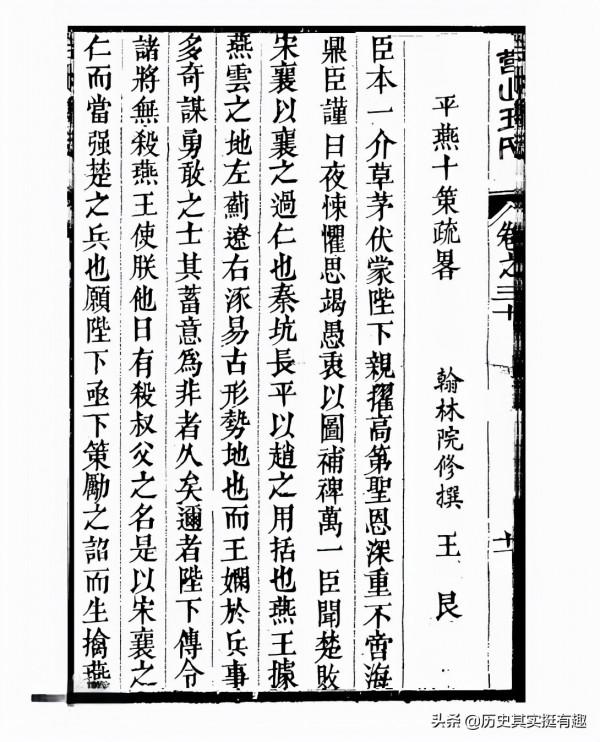 營山王氏
卷之三十
十一
平燕十策疏畧
翰林院修撰 王艮
臣本一介草茅伏蒙陛下親擢高第聖恩深重不啻海
鼎臣謹日夜悚懼思竭愚衷以圖補裨萬一臣聞楚敗
宋襄以襄之過仁也秦坑長平以趙之用括也燕王據
燕雲之地左薊遼右涿易古形勢地也而王嫻於兵事
多奇謀勇敢之士其蓄意爲非者久矣邇者陛下傳令
諸將無殺燕王使朕他日有殺叔父之名是以宋襄之
仁而當强楚之兵也願陛下亟下策勵之詔而生擒燕
头条 @历史其实挺有趣